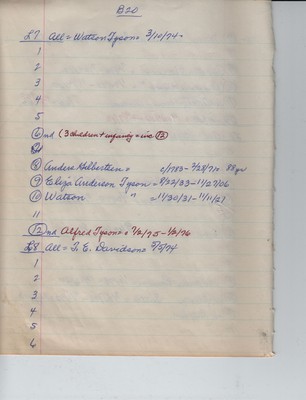 B20
L7 All = Watson Tyson = 3/10/74 =
1
2
3
4
5
6 nd (3 children + infancy = inc 12)
8 Anders Halbertsen = 2/1783 - 7/28/71 88 yrs
9 Eliza Anderson Tyson = 8/22/33 - 11/27/06
10 Watson " = 11/30/31 - 11/11/21
11
12 nd Alfred Tyson = 7/2/75 - 1/2/76
L8 All = T. E. Davidson = 7/5/74
1
2
3
4
5
6